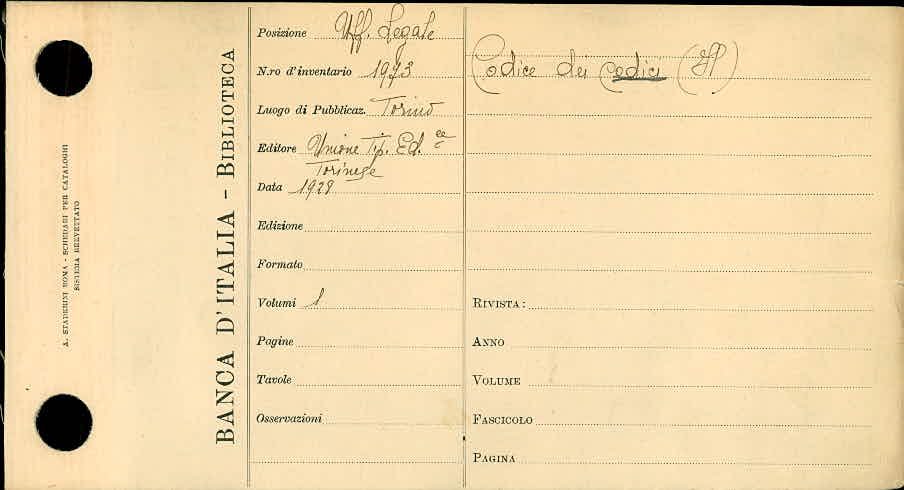 A. STADERINI ROMA - SCHEDARI PER CATALOGHI
SISTEMA BREVETTATO
BANCA D'ITALIA - BIBLIOTECA
Posizione Uff. Legale
N.ro d'inventario 1973
Luogo di Pubblicaz. Torino
Editore Unione Tip. Ed. ce
Torinese
Data 1928
Edizione
Formato
Volumi 1
Pagine
Tavole
Osservazioni
Codice dei codici (Il)
RIVISTA:
ANNO
VOLUME
FASCICOLO
PAGINA